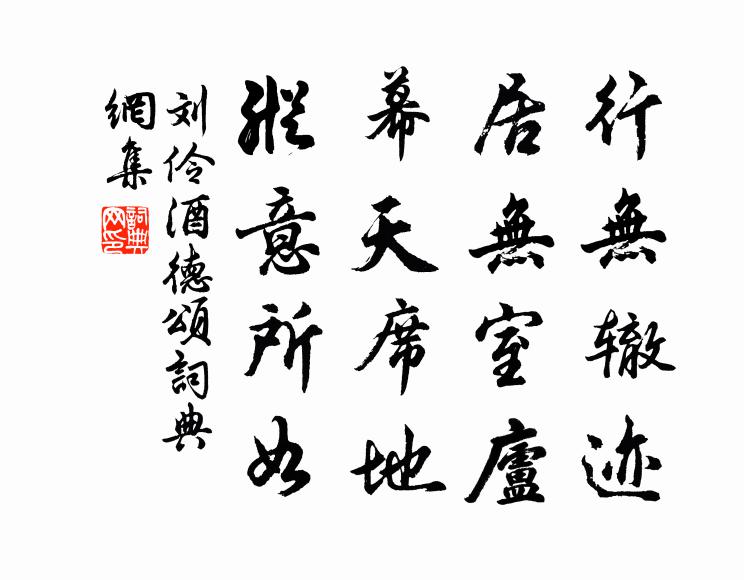 行無辙迹
居無室廬
幕天席地
縱意所如
刘伶酒德頌詞典
網集
詞典
网印